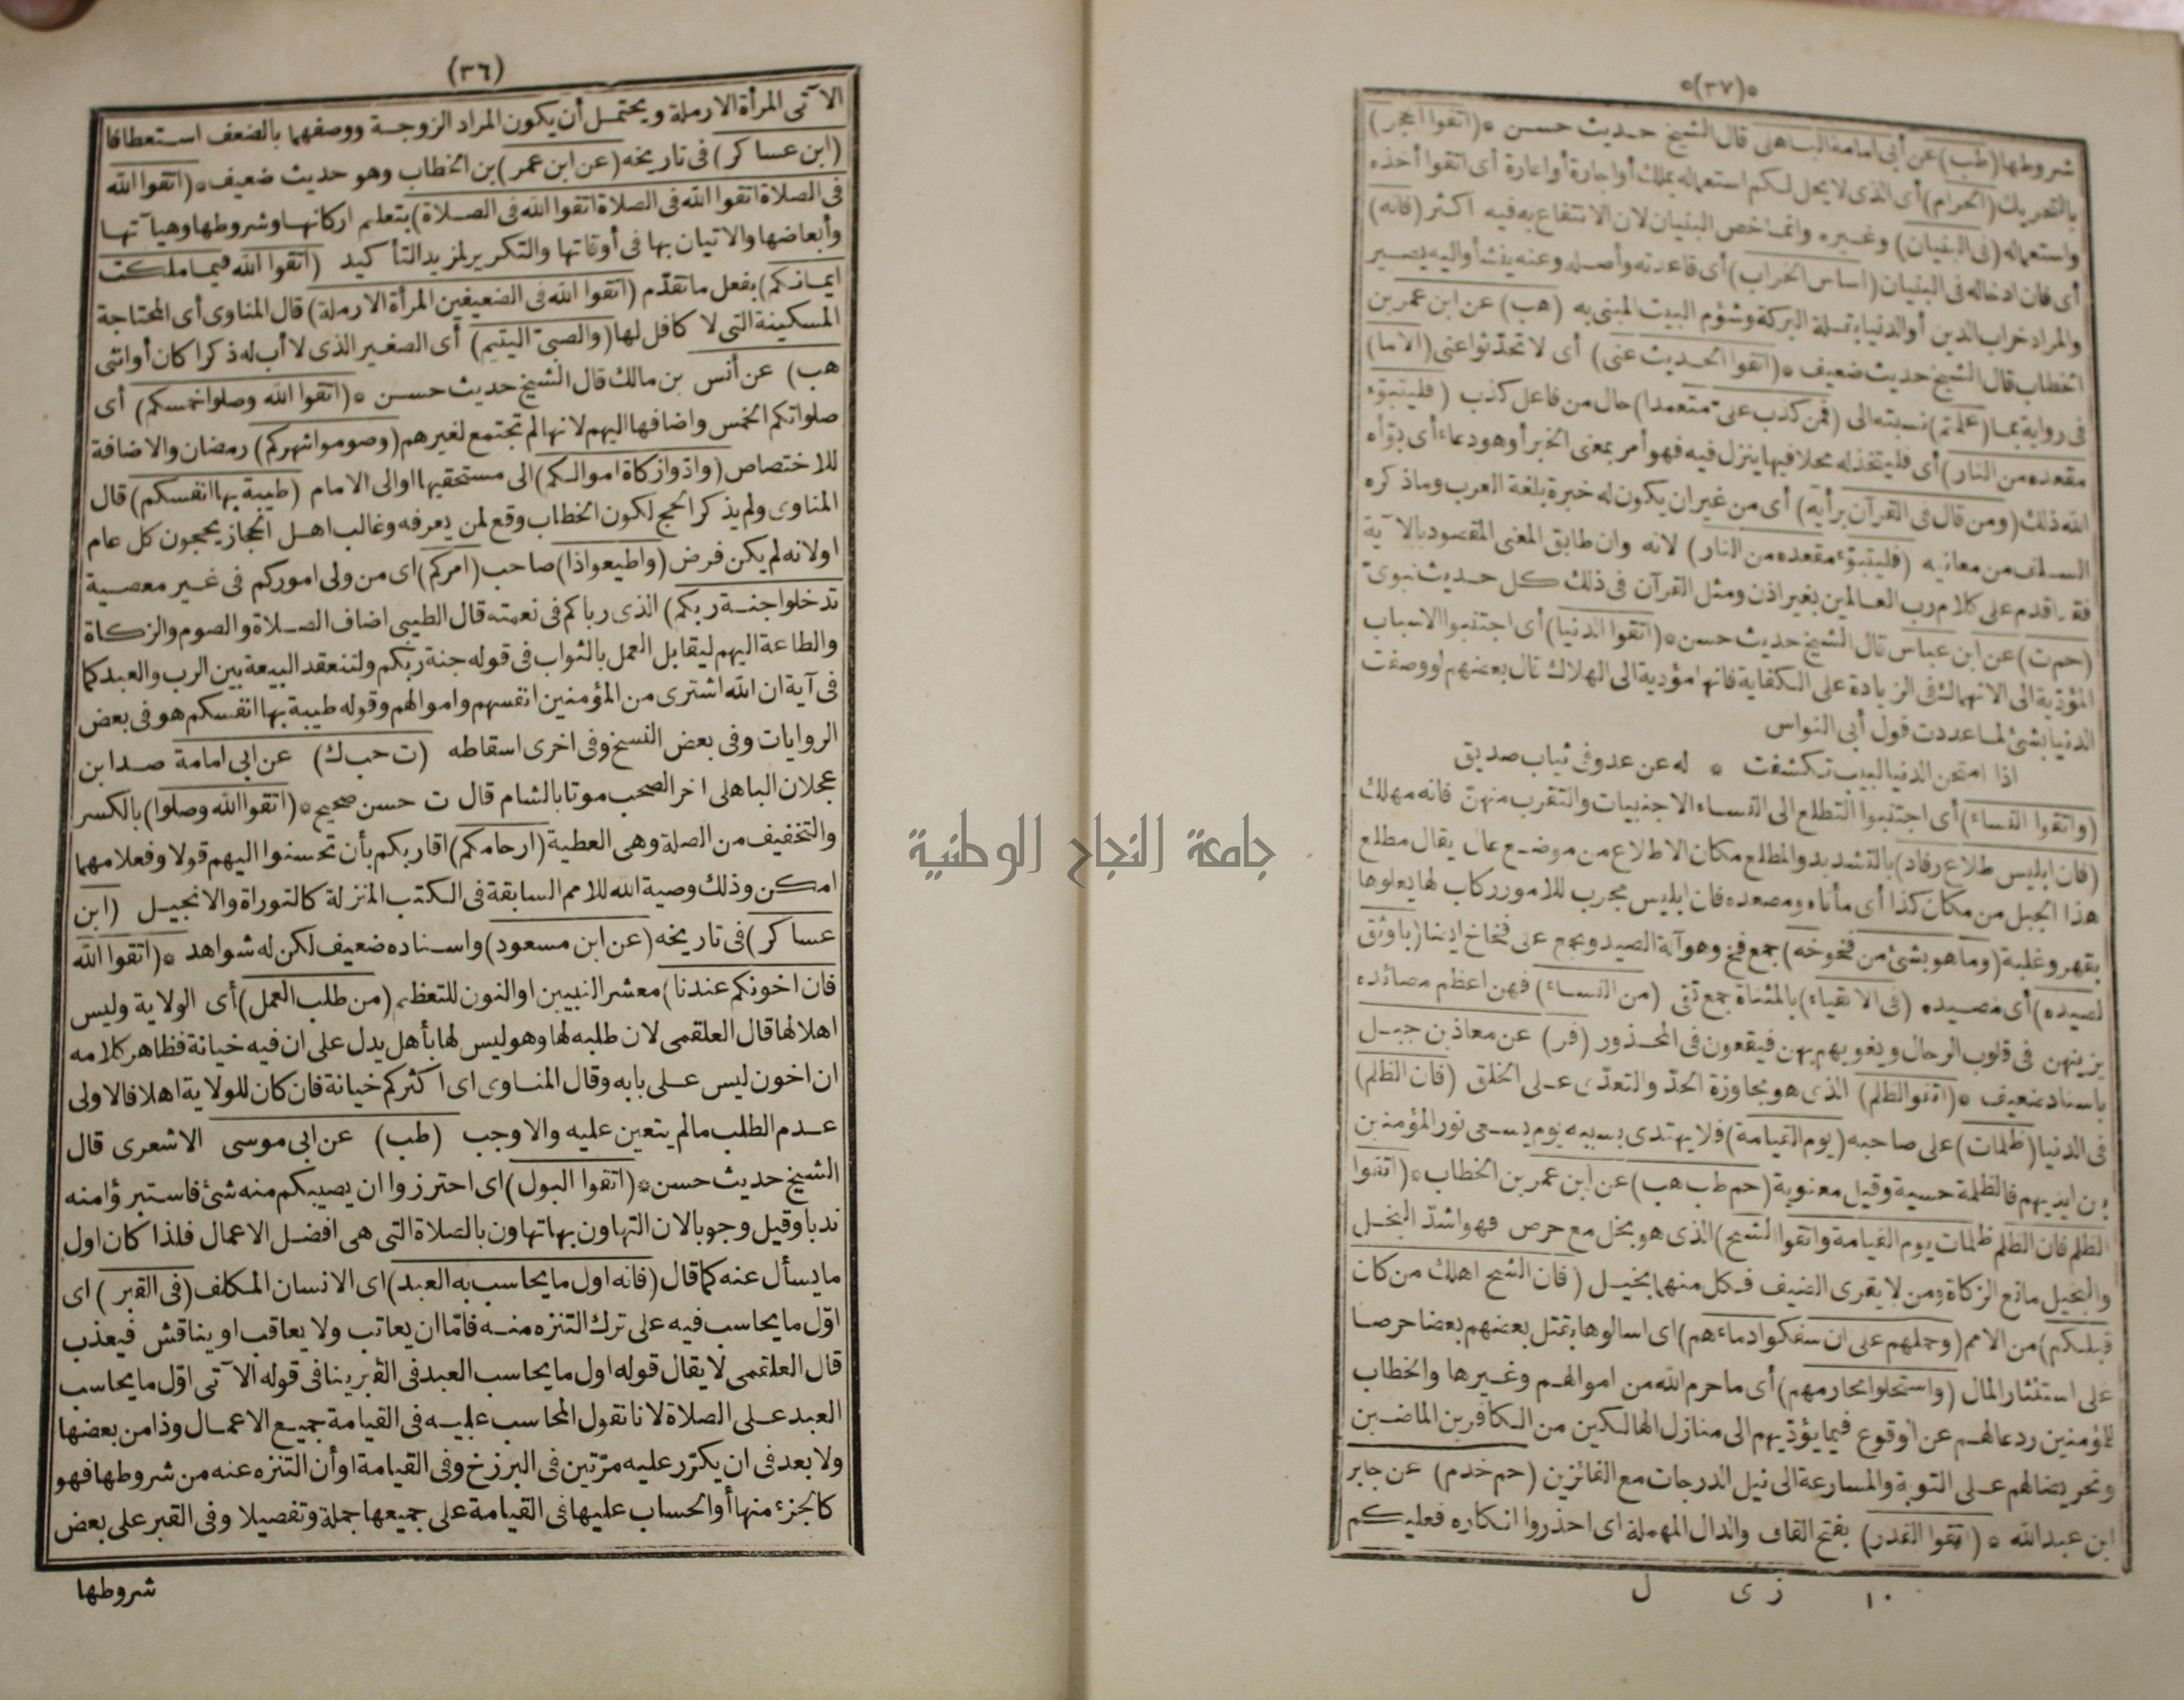 (٣٦)
الآتى المرأة الارملة ويحتمل أن يكون المراد الزوجة ووصفهما بالضعف استعطافا
(ابن عساكر) فى تاريخه (عن ابن عمر) بن الخطاب وهو حديث ضعيف * (اتقوا الله
فى الصلاة اتقوا الله فى الصلاة اتقوا الله فى الصلاة) بتعلم اركانها وشروطها وهيآتها
وأبعاضها والاتيان بها فى أوقاتها والتكرير لمزيد التأكيد (اتقوا الله فيما ملكت
ايمانكم) بفعل ما تقدّم (اتقوا الله فى الضعيفين المرأة الارملة) قال المناوى أى المحتاجة
المسكينة التى لا كافل لها (والصبىّ اليتيم) أى الصغير الذى لا أب له ذكرا كان أو انثى
هب) عن أنس بن مالك قال الشيخ حديث حسن * (اتقوا الله وصلوا خمسكم) أى
صلواتكم الخمس واضافها اليهم لانها لم تجتمع لغيرهم (وصوموا شهركم) رمضان والاضافة
للاختصاص (وادّوا زكاة اموالكم) الى مستحقيها او الى الامام (طيبة بها انفسكم) قال
المناوى ولم يذكر الحج لكون الخطاب وقع لمن يعرفه وغالب اهل الحجاز يحجون كل عام
اولانه لم يكن فرض (واطيعوا ذا) صاحب (امركم) اى من ولى اموركم فى غير معصية
تدخلوا جنة ربكم) الذى رباكم فى نعمته قال الطيبى اضاف الصلاة والصوم والزكاة
والطاعة اليهم ليقابل العمل بالثواب فى قوله جنة ربكم ولتنعقد البيعة بين الرب والعبد كما
فى آية ان الله اشترى من المؤمنين انفسهم واموالهم وقوله طيبة بها انفسكم هو فى بعض
الروايات وفى بعض النسخ وفى اخرى اسقاطه (ت حب ك) عن ابى امامة صدا بن
عجلان الباهلى اخر الصحب موتا بالشام قال ت حسن صحيح * (اتقوا الله وصلوا) بالكسر
والتخفيف من الصلة وهى العطية (ارحامكم) اقاربكم بأن تحسنوا اليهم قولا وفعلا مهما
امكن وذلك وصية الله للامم السابقة فى الكتب المنزلة كالتوراة والانجيل (ابن
عساكر) فى تاريخه (عن ابن مسعود) واسناده ضعيف لكن له شواهد * (اتقوا الله
فان اخونكم عندنا) معشر النبيين او النون للتعظيم (من طلب العمل) أى الولاية وليس
اهلا لها قال العلقمى لان طلبه لها وهو ليس لها بأهل يدل على ان فيه خيانة فظاهر كلامه
ان اخون ليس على بابه وقال المناوى اى اكثركم خيانة فان كان للولاية اهلا فالاولى
عدم الطلب ما لم يتعين عليه والا وجب (طب) عن ابى موسى الاشعرى قال
الشيخ حديث حسن * (اتقوا البول) اى احترزوا ان يصيبكم منه شئ فاستبرؤا منه
ندبا وقيل وجوبا لان التهاون بها تهاون بالصلاة التى هى افضل الاعمال فلذا كان اول
ما يسأل عنه كما قال (فانه اول ما يحاسب به العبد) اى الانسان المكلف (فى القبر) اى
اوّل ما يحاسب فيه على ترك التنزه منه فامّا ان يعاتب ولا يعاقب او يناقش فيعذب
قال العلقمى لا يقال قوله اول ما يحاسب العبد فى القبر ينافى قوله الآتى اوّل ما يحاسب
العبد على الصلاة لانا نقول المحاسب عليه فى القيامة جميع الاعمال وذا من بعضها
ولا بعد فى ان يكرّر عليه مرّتين فى البرزخ وفى القيامة او أن التنزه عنه من شروطها فهو
كالجزء منها أو الحساب عليها فى القيامة على جميعها جملة وتفصيلا وفى القبر على بعض
شروطها
*(٣٧)*
شروطها (طب) عن أبى امامة الباهلى قال الشيخ حديث حسن * (اتقوا الحجر)
بالتحريك (الحرام) أى الذى لا يحل لكم استعماله بملك أو اجارة أو اعارة أى اتقوا أخذه
واستعماله (فى البنيان) وغيره وانما خص البنيان لان الانتفاع به فيه اكثر (فانه)
أى فان ادخاله فى البنيان (اساس الخراب) أى قاعدته وأصله وعنه ينشأ واليه يصير
والمراد خراب الدين أو الدنيا بقلة البركة وشؤم البيت المبنى به (هب) عن ابن عمر بن
الخطاب قال الشيخ حديث ضعيف * (اتقوا الحديث عنى) أى لا تحدّثوا عنى (الا ما)
فى رواية بما (علمتم) نسبته الى (فمن كذب علىّ متعمدا) حال من فاعل كذب (فليتبوّء
مقعده من النار) أى فليتخذ له محلا فيها ينزل فيه فهو أمر بمعنى الخبر أو هو دعاء أى بوّأه
الله ذلك (ومن قال فى القرآن برأيه) أى من غير ان يكون له خبرة بلغة العرب وما ذكره
السلف من معانيه (فليتبوّء مقعده من النار) لانه وان طابق المعنى المقصود بالآية
فقد اقدم على كلام رب العالمين بغير اذن ومثل القرآن فى ذلك كل حديث نبوىّ
(حم ت) عن ابن عباس قال الشيخ حديث حسن * (اتقوا الدنيا) أى اجتنبوا الاسباب
المؤدّية الى الانهماك فى الزيادة على الكفاية فانها مؤدية الى الهلاك قال بعضهم لو وصفت
الدنيا بشئ لما عددت قول أبى النواس
اذا امتحن الدنيا لبيب تكشفت * له عن عدو فى ثياب صديق
(واتقوا النساء) أى اجتنبوا التطلع الى النساء الاجنبيات والتقرب منهنّ فانه مهلك
(فان ابليس طلاع رفاد) بالتشديد والمطلع مكان الاطلاع من موضع عال يقال مطلع
هذا الجبل من مكان كذا أى مأتاه ومصعده فان ابليس مجرب للامور ركاب لها يعلوها
بقهر وغلبة (وما هو بشئ من فخوخه) جمع فخ وهو آلة الصيد ويجمع على فخاخ ايضا (باوثق
لصيده) أى مصيده (فى الاتقياء) بالمثناة جمع تقى (من النساء) فهن اعظم مصائده
يزينهن فى قلوب الرجال ويغويهم بهن فيقعون فى المحذور (فر) عن معاذ بن جبل
باسناد ضعيف * (اتقوا الظلم) الذى هو مجاوزة الحدّ والتعدّى على الخلق (فان الظلم)
فى الدنيا (ظلمات) على صاحبه (يوم القيامة) فلا يهتدى بسببه يوم يسعى نور المؤمنين
بين ايديهم فالظلمة حسية وقيل معنوية (حم طب هب) عن ابن عمر بن الخطاب * (اتقوا
الظلم فان الظلم ظلمات يوم القيامة واتقوا الشح) الذى هو بخل مع حرص فهو اشدّ البخل
والبخيل مانع الزكاة ومن لا يقرى الضيف فكل منهما بخيل (فان الشح اهلك من كان
قبلكم) من الامم (وحملهم على ان سفكوا دماءهم) اى اسالوها بقتل بعضهم بعضا حرصا
على استئثار المال (واستحلوا محارمهم) أى ما حرم الله من اموالهم وغيرها والخطاب
للمؤمنين ردعا لهم عن الوقوع فيما يؤدّيهم الى منازل الهالكين من الكافرين الماضين
وتحريضا لهم على التوبة والمسارعة الى نيل الدرجات مع الفائزين (حم خد م) عن جابر
ابن عبد الله * (اتقوا القدر) بفتح القاف والدال المهملة اى احذروا انكاره فعليكم
١٠ زى ل
جامعة النجاح الوطنية